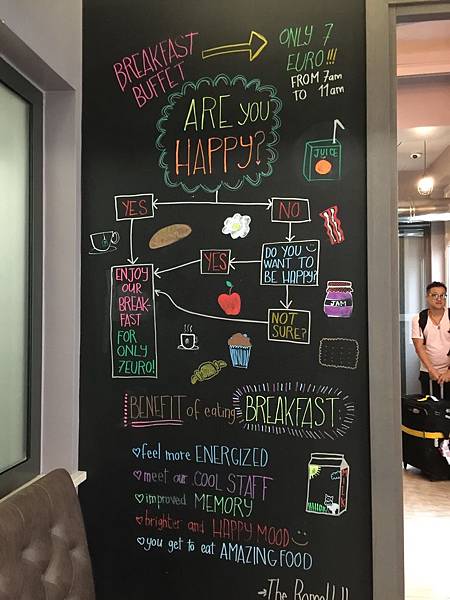 BREAKFAST
BUFFET
ONLY 7
EURO!!!
FROM 7am
TO 11am
ARE YOU
HAPPY?
JUICE
YES
NO
DO YOU
WANT TO
BE HAPPY?
YES
ENJOY
OUR
BREAK-
FAST
FOR
ONLY
7EURO!
NOT
SURE?
JAM
BENEFIT of eating BREAKFAST
feel more ENERGIZED
meet our COOL STAFF
improved MEMORY
brighter and HAPPY MOOD
you get to eat AMAZING FOOD
The